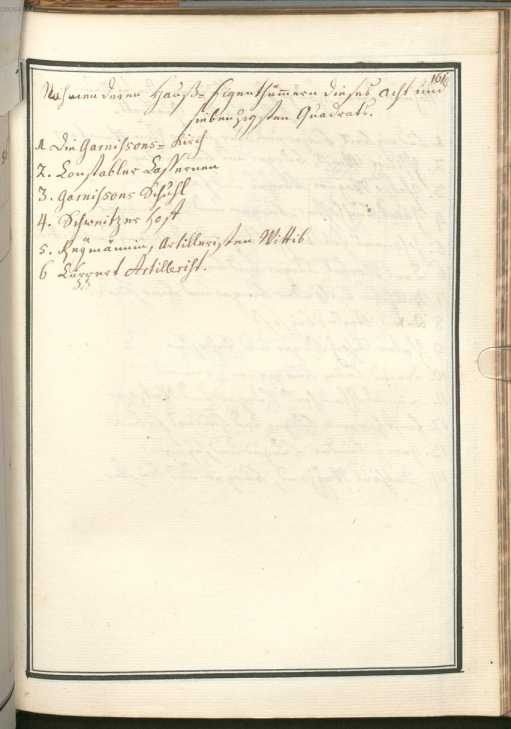 161
Nahmen deren Hauß-Eigenthümmern dieses Acht und
siebenzigsten Quadrats.
1. Die Garnissons-Kirch
2. Constabler Cassernen
3. Garnissons Schuhl
4. Schweitzer Hoff
5. Artilleristen Wittib
6 Artillerist.